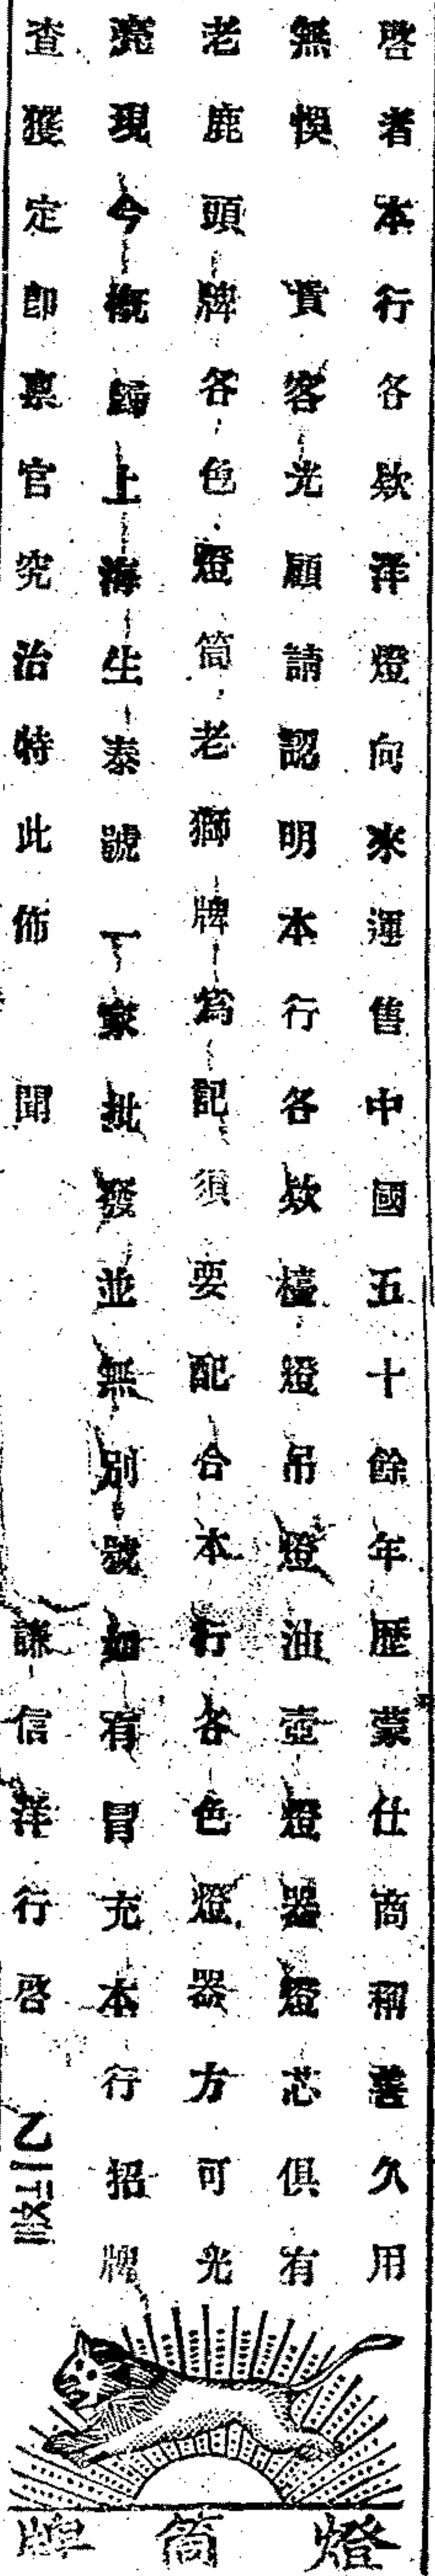 啓者本行各欵洋燈向來運售中國五十餘年歷蒙仕商稱善久用
無悞 貴客光顧請認明本行各欵檯燈吊燈油壺燈器燈芯俱有
老鹿頭牌各色燈筒老獅牌爲記須要配合本行各色燈器方可光
亮現今概歸上海生泰號一家批發並無別號如有冒充本行招牌
查獲定卽稟官究治特此佈 聞 謙信洋行啓
燈筒牌